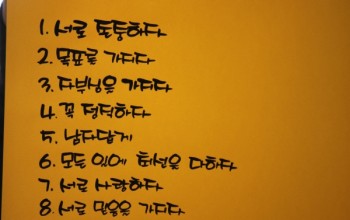 1. 서로 토통하다
2. 목표를 가지다
3. 다부님을 가지다
4. 꼭 정덕하다
5. 남자답게
6. 모든 일에 최선을 다하다
7. 서로 사랑하다
8. 서로 믿음을 가지다